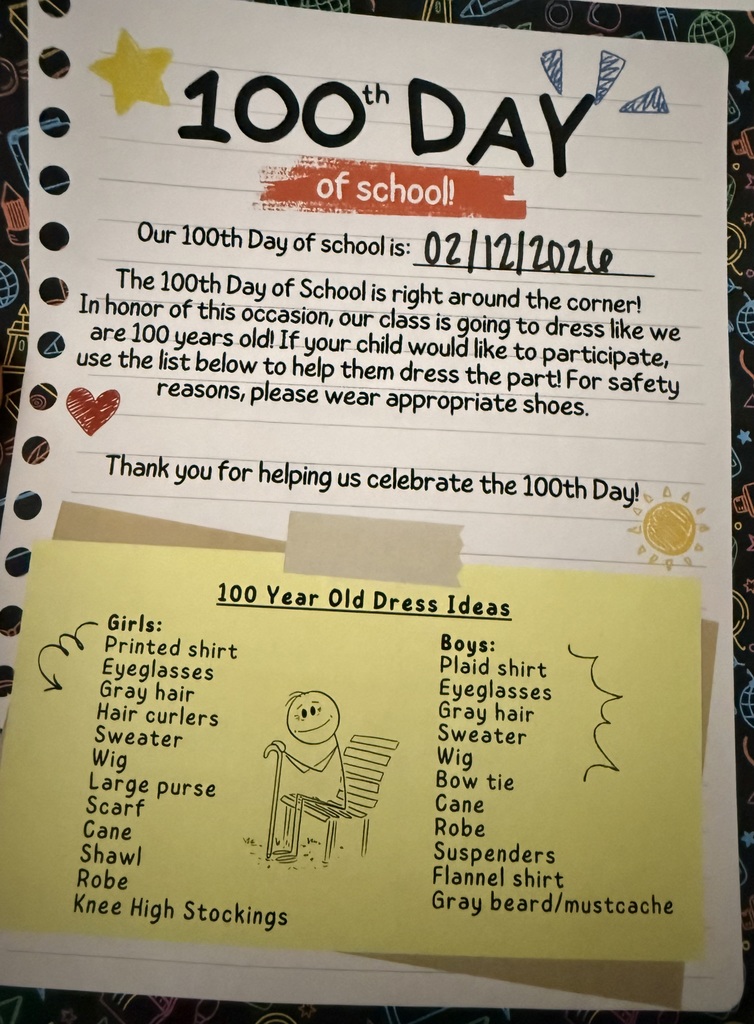 100th DAY
of school!
Our 100th Day of school is: 02/12/2026
The 100th Day of School is right around the corner!
In honor of this occasion, our class is going to dress like we
are 100 years old! If your child would like to participate,
use the list below to help them dress the part! For safety
reasons, please wear appropriate shoes.
Thank you for helping us celebrate the 100th Day!
100 Year Old Dress Ideas
Girls:
Printed shirt
Eyeglasses
Gray hair
Hair curlers
Sweater
Wig
Large purse
Scarf
Cane
Shawl
Robe
Knee High Stockings
Boys:
Plaid shirt
Eyeglasses
Gray hair
Sweater
Wig
Bow tie
Cane
Robe
Suspenders
Flannel shirt
Gray beard/mustcache